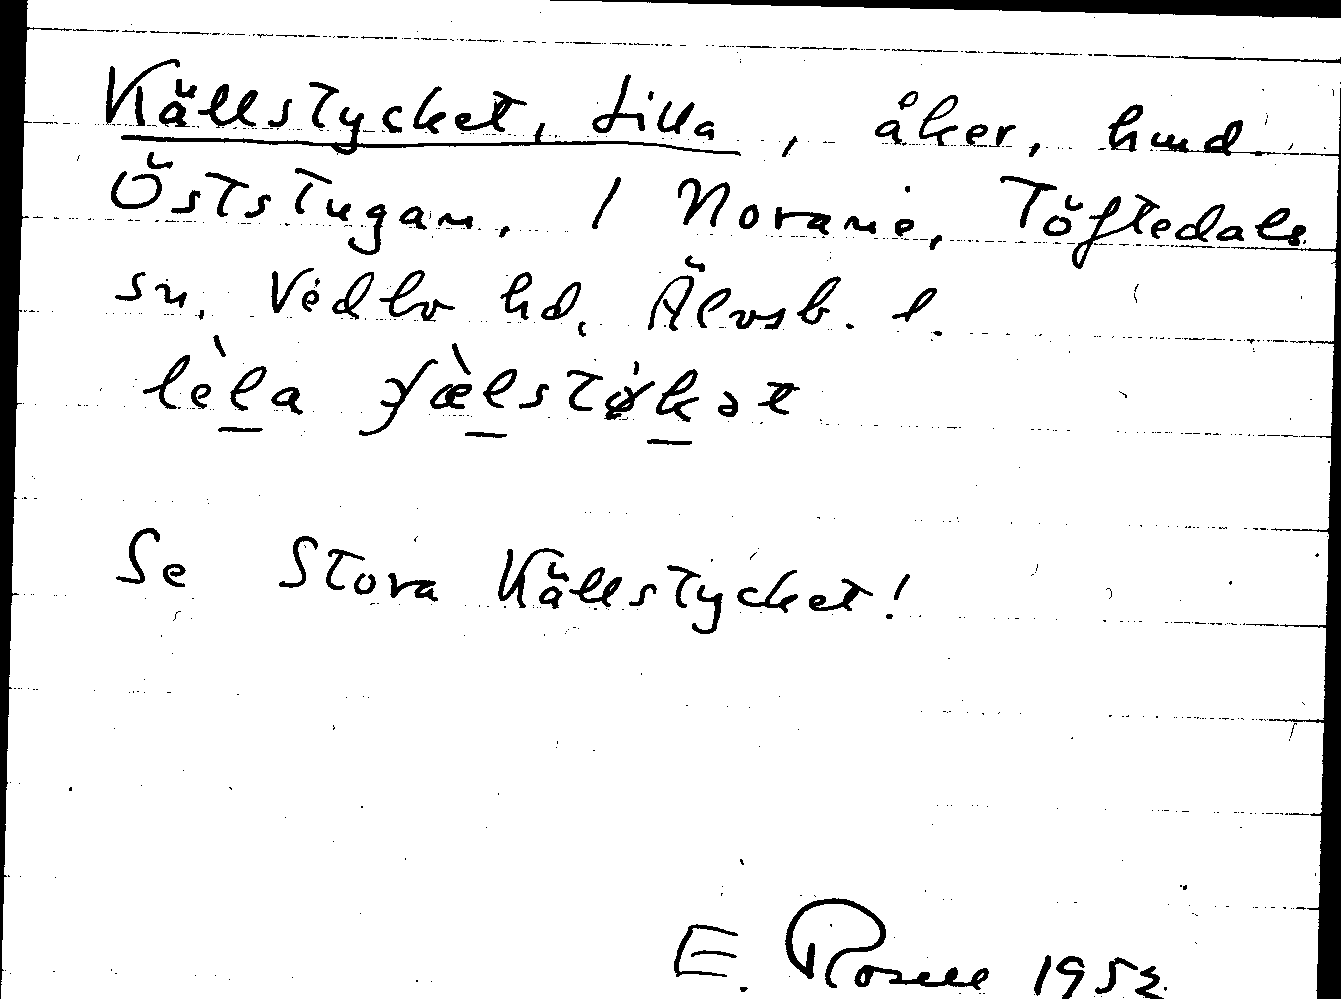 Källstycket, Lilla, åker, hmd.
Öststugan, 1 Norane, Töftedals
sn. Vedbo hd. Älvsb. l.
lèla
Se Stora Källstycket!
E. Rosell 1952